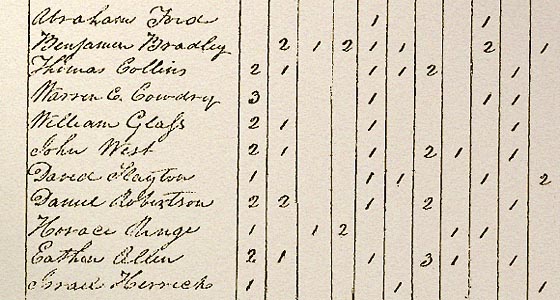 Abraham Ford 1 1
Benjamin Bradley 2 1 2 1 1 2 1
Thomas Collins 2 1 1 1 2 1
Warren C. Cowdry 3 1 1 1
William Glass 2 1 1 1
John West 2 1 1 2 1 1
David Slayton 1 1 1 1 2
Daniel Robertson 2 2 1 2 1
Horace 1 1 2 1 1
Eathan Allen 2 1 1 3 1 1
Israel Herrick 1 1 1